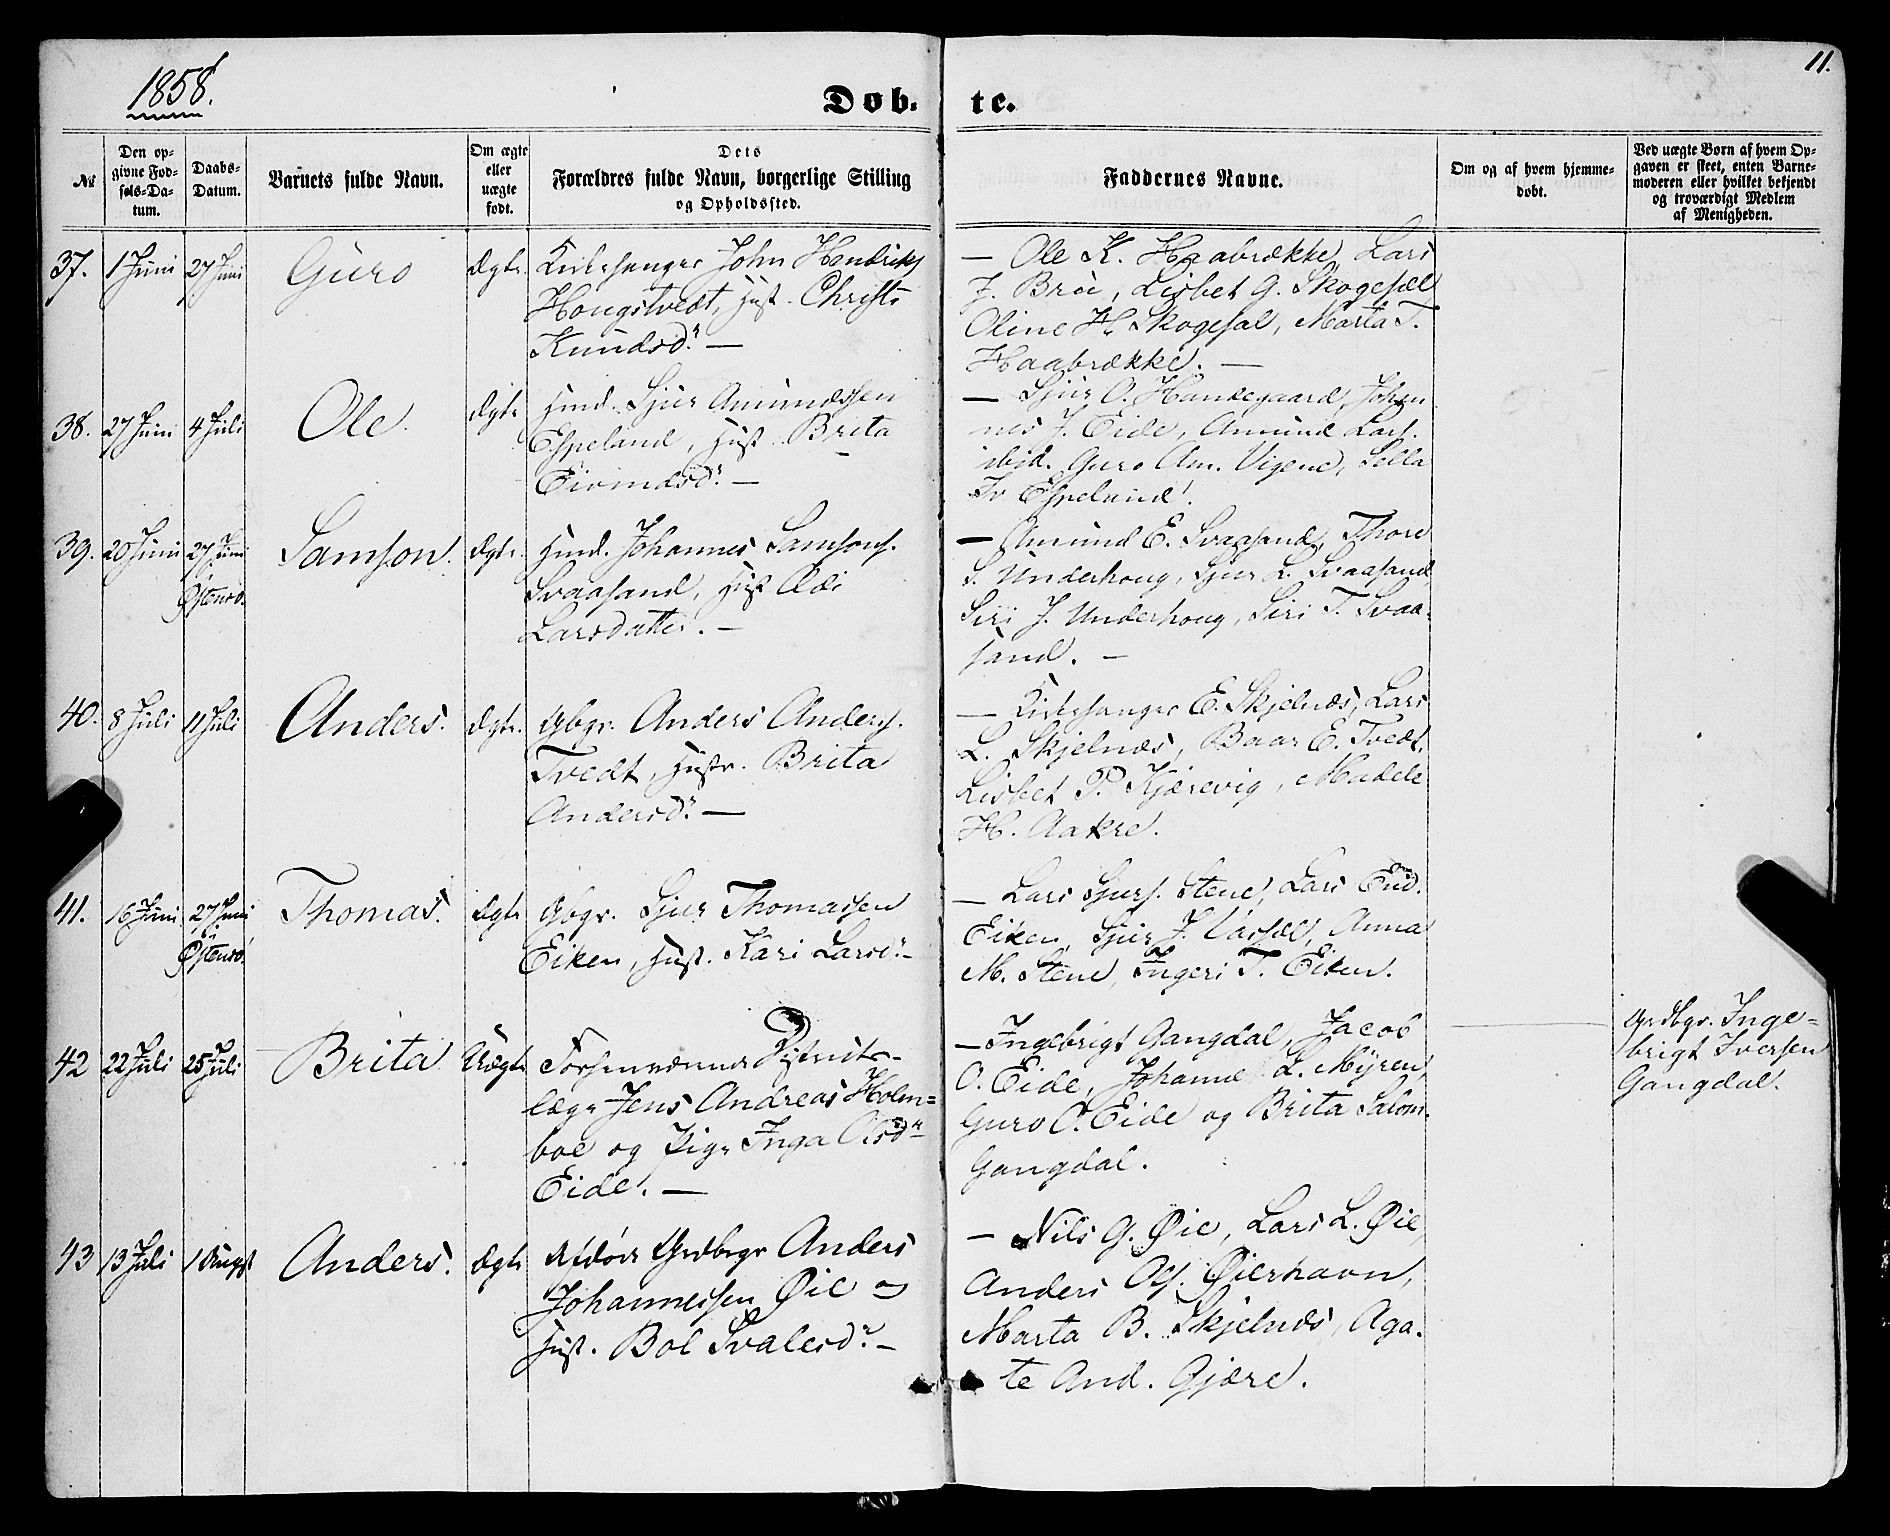 1858.
11.
Døb-
te.
No
Den op-
givne Fød-
sels-Da-
tum.
Daabs-
Datum.
Barnets fulde Navn.
Om ægte
eller
uægte
født.
Dets
Forældres fulde Navn, borgerlige Stilling
og Opholdssted.
Faddernes Navne.
Om og af hvem hjemme-
døbt.
Ved uægte Børn af hvem Op-
gaven er skeet, enten Barne-
moderen eller hvilket bekjendt
og troværdigt Medlem
af Menigheden.
37. 1 Juni 27 Juni Guro Ægte. Kirkesanger John Hendriks
Hougstvedt, Hust. Christi
Knudsdr. —
— Ole K. Haabrække, Lars
J. Bru, Lisbet G. Skogesæl
Oline H. Skogesal, Marta T.
Haabrække. —
38. 27 Juni 4 Juli Ole. Ægte Huusmd. Sjur Amundssen
Espeland, Hust. Brita
Eivindsdr. —
— Sjur O. Handegaard, Johan-
nes J. Eide, Amund Lars.
ibid. Guro Am. Vigene,
Iv Espeland.
39. 20 Juni 27 Juni
i
Østensø.
Samson. Ægte. Huusmd. Johannes Samsons.
Svaasand, Hust
Larsdatter. —
— Amund E. Svaasand, Thore
S. Underhoug, Sjur L. Svaasand
Siri J. Underhoug, Siri T. Svaa-
sand. —
40. 8 Juli 11 Juli Anders. Ægte. Gbgr. Anders Anders.
Tvedt, Hustr. Brita
Andersdr. —
— Kirkesanger E. Skjelnæs, Lars
L. Skjelnæs, Baar E. Tvedt,
Lisbet P. Kjærevig, Madele
H. Aakre.
41. 16 Juni 27 Juni
i
Østensø.
Thomas. Ægte Gbgr. Sjur Thomassen
Eiken, Hust. Kari Larsdr. —
— Lars Sjurs. Stene, Lars End.
Eiken, Sjur J. Vassel, Anna
M. Stene, Ingeri T. Eiken.
42 22 Juli 25 Juli Brita Uægte Forhenværende Distrikts-
læge Jens Andreas Holm-
boe og Pige Inga Olsdr
Eide. —
— Ingebrigt Gangdal, Jacob
O. Eide, Johanne L. Myren,
Guro O. Eide og Brita Salom.
Gangdal.
Grdbgr. Inge-
brigt Iversen
Gangdal.
43 13 Juli 1 August Anders. Ægte Afdøde Grdbrgr Anders
Johannessen Øie og
Hust. Bol Svalesdr. —
— Nils G. Øie, Lars L. Øie
Anders Ols. Øierhavn,
Marta B. Skjelnæs, Aga-
te And. Gjære.